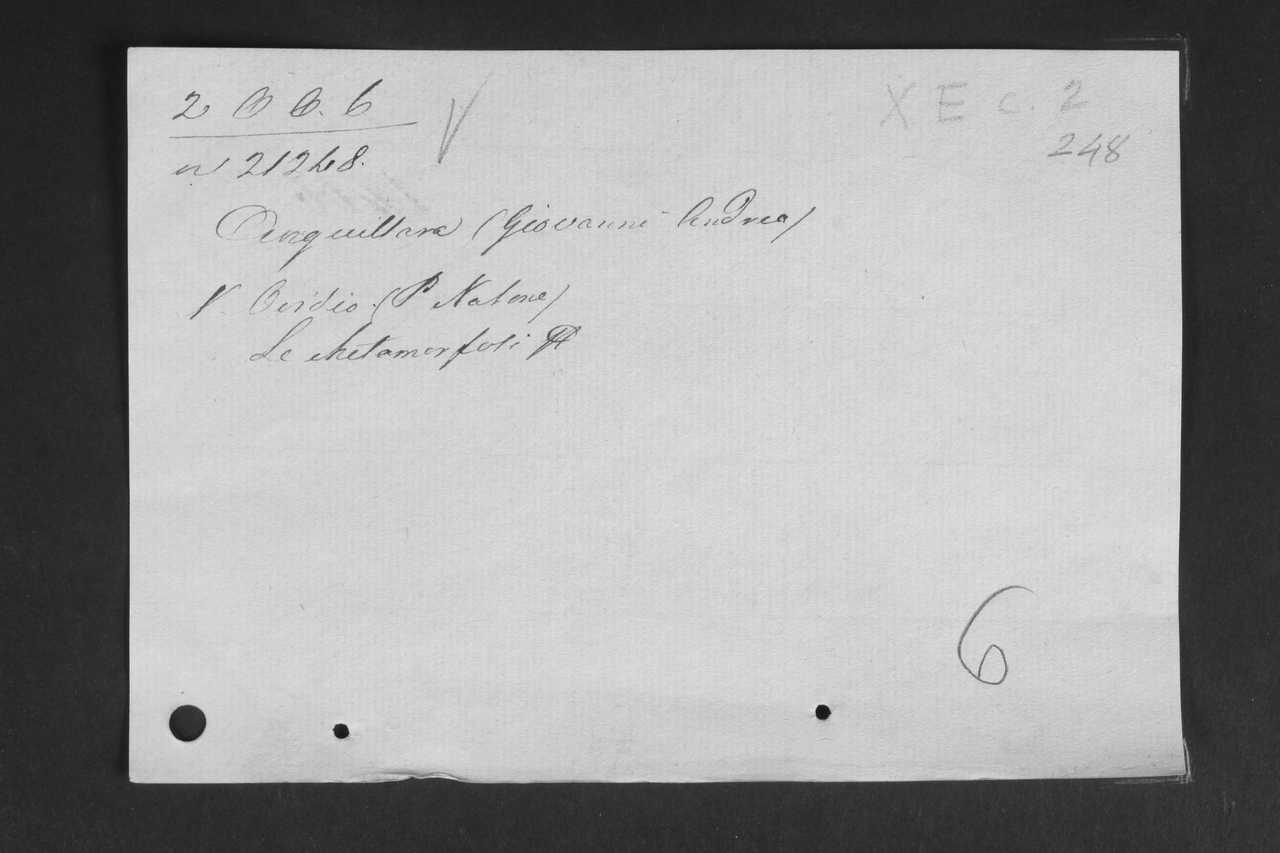 2 B B. 6
XE c. 2
248
n 21248.
Anguillara (Giovanni Andrea)
V. Ovidio (P Nasone)
Le Metamorfosi
6